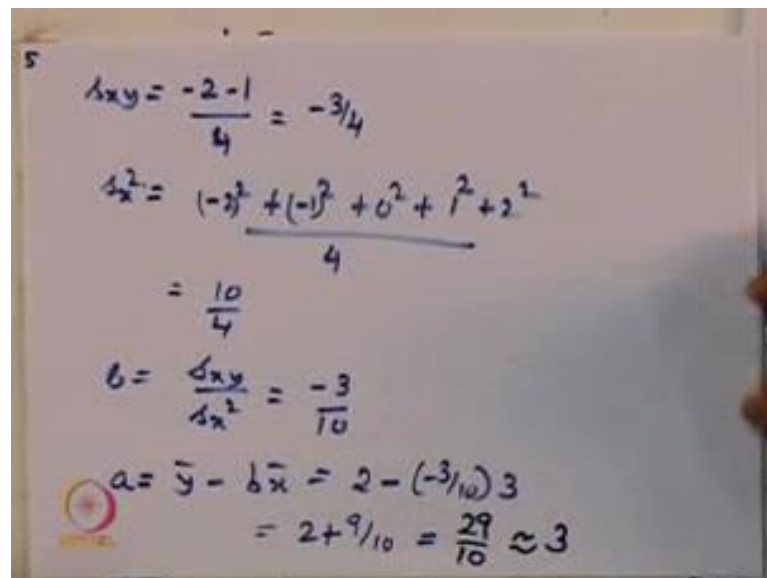 5
sxy = -2-1/4 = -3/4
sx² = (-2)² + (-1)² + 0² + 1² + 2²/4
= 10/4
b = sxy/sx² = -3/10
a = ȳ - bx̄ = 2 - (-3/10) 3
= 2 + 9/10 = 29/10 ≈ 3